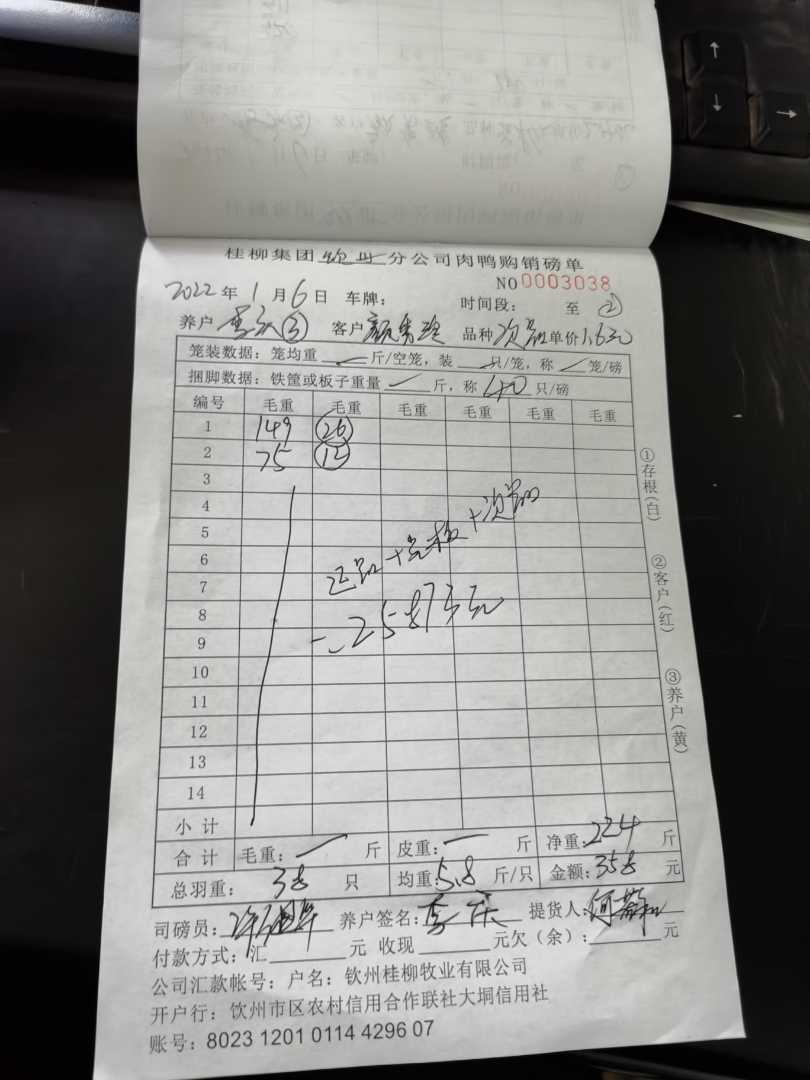 桂柳集团 分公司肉鸭购销磅单
NO 0003038
2022年1月6日 车牌: 时间段: 至 ②
养户 ③ 客户 颜秀玲 品种 次品 单价1.6元
笼装数据: 笼均重 斤/空笼, 装 只/笼, 称 笼/磅
捆脚数据: 铁筐或板子重量 斤, 称 40 只/磅
编号 毛重 毛重 毛重 毛重 毛重 毛重
1 149 26
2 75 12
3
4
5
6
7
8
9
10
11
12
13
14
正品+光板+次品
=25873元
小计
合计 毛重: 斤 皮重: 斤 净重: 224 斤
总羽重: 38 只 均重: 5.8 斤/只 金额: 358 元
司磅员: 养户签名: 提货人:
付款方式: 汇 元 收现 元欠(余): 元
公司汇款帐号: 户名: 钦州桂柳牧业有限公司
开户行: 钦州市区农村信用合作联社大垌信用社
账号: 8023 1201 0114 4296 07
①存根(白)
②客户(红)
③养户(黄)